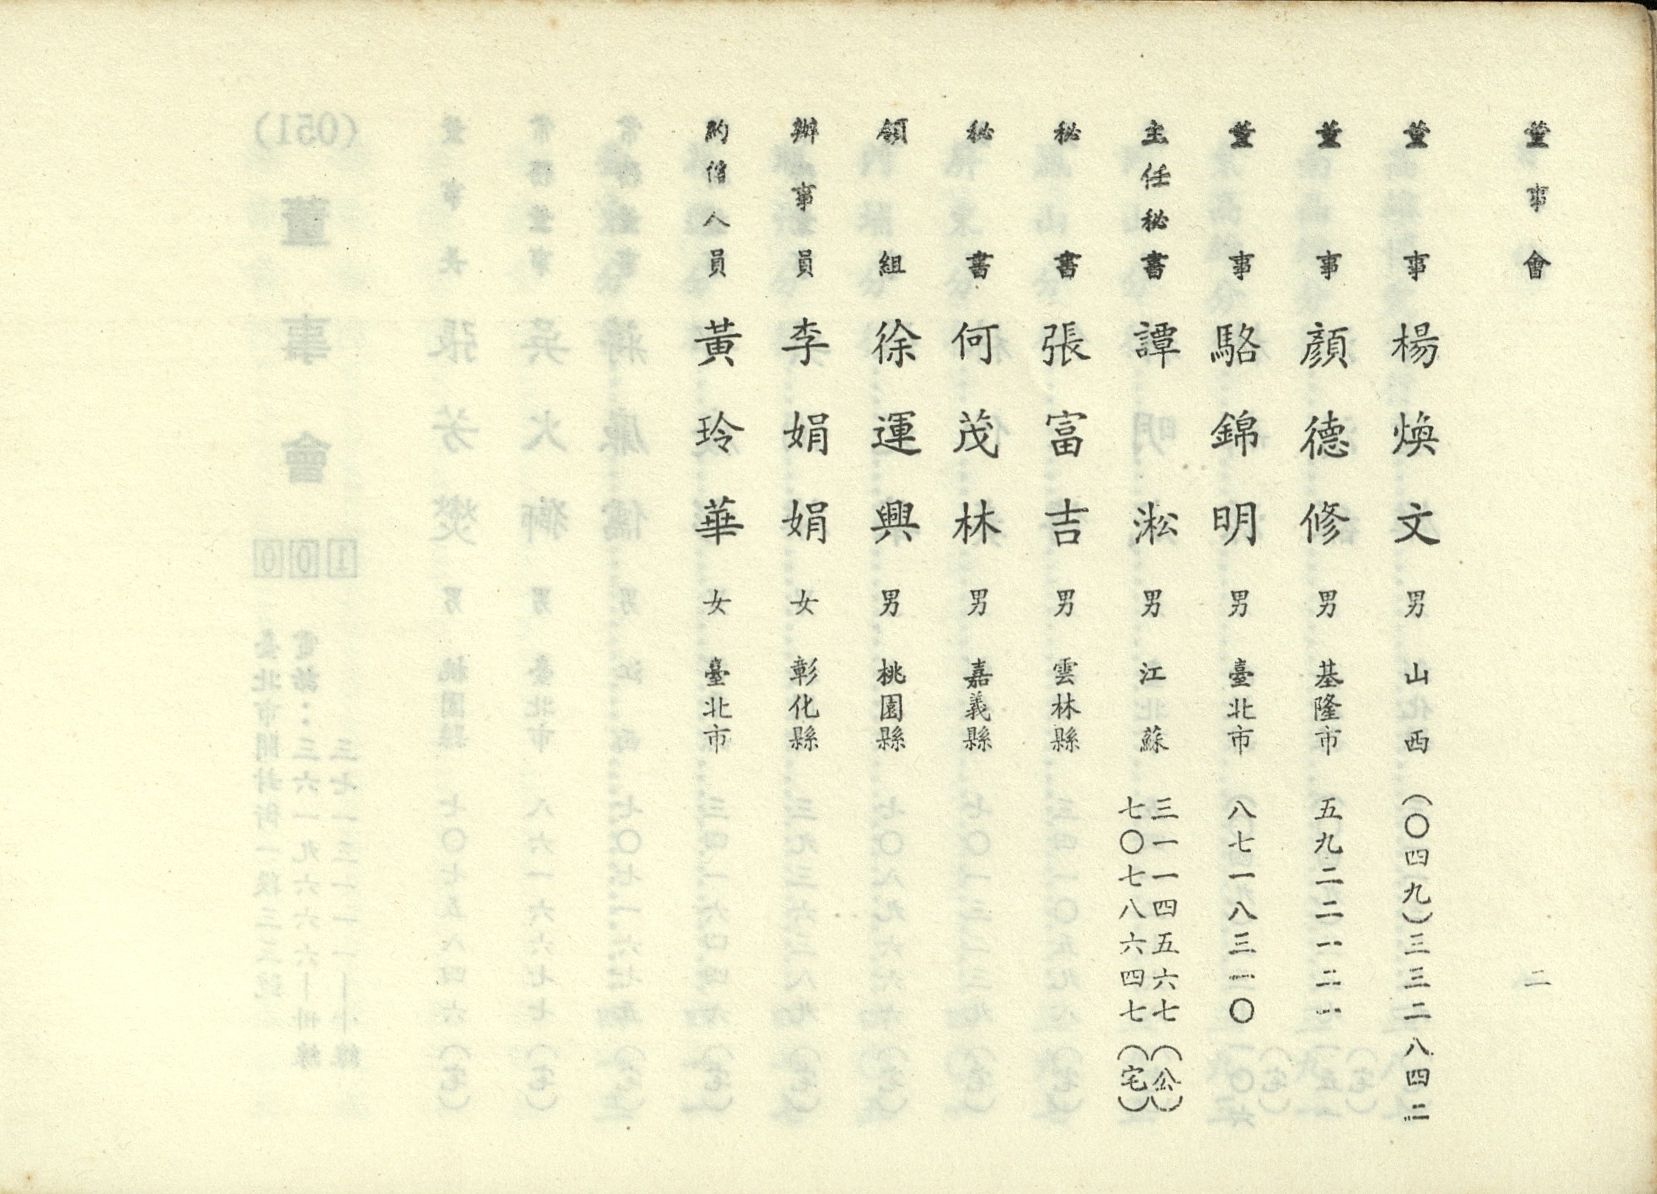 董事會
二
董事 楊煥文 男 山西 (〇四九)三三二八四二
董事 顏德修 男 基隆市 五九二二一二一
董事 駱錦明 男 臺北市 八七一八三一〇
主任秘書 譚淞 男 江蘇 三一一四五六七(公)
七〇七八六四七(宅)
秘書 張富吉 男 雲林縣
秘書 何茂林 男 嘉義縣
領組 徐運興 男 桃園縣
辦事員 李娟娟 女 彰化縣
約僱人員 黃玲華 女 臺北市